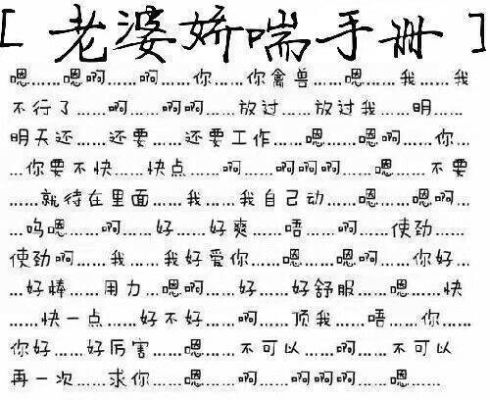 [老婆娇喘手册]
嗯……嗯啊……啊……你……你禽兽……嗯……我……我
不行了……啊……啊啊……放过……放过我……明……
明天还……还要……还要工作……嗯……嗯啊……你…
…你要不快……快点……啊……啊啊啊……嗯……不要
……就待在里面……我……我自己动……嗯……嗯啊…
…呜嗯……啊……好……好爽……唔……啊……使劲……
使劲啊……我……我好爱你……嗯……嗯啊……你好…
…好棒……用力…嗯啊……好……好舒服……嗯……快
……快一点……好不好……啊……顶我……唔……你……
你好……好厉害……嗯……不可以……啊……不可以
再一次……求你……嗯……啊……啊啊啊……嗯……